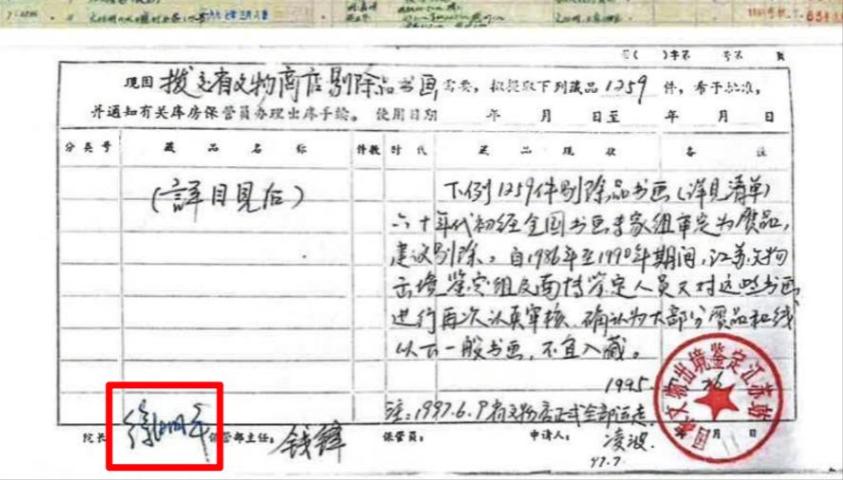 现因 拨交省文物商店剔除品书画 需要，拟提取下列藏品 1259 件，希予批准，
并通知有关库房保管员办理出库手续。 使用日期 年 月 日至 年 月 日
分类号 藏品名称 件数 时代 藏品现状 备注
(詳目見后)
下例1259件剔除品书画(详见清单)
六十年代初经全国书画专家组审定为赝品，
建议剔除。自1986年至1990年期间，江苏文物
出境鉴定组及南博鉴定人员又对这些书画
进行再次认真审核，确认为大部分赝品和线
以下一般书画，不宜入藏。
1995.
国家文物出境鉴定江苏站
注：1997.6.9省文物店正式全部
院长 徐湖平 保管部主任： 钱锋 保管员： 申请人： 凌波 月 日
97.7.